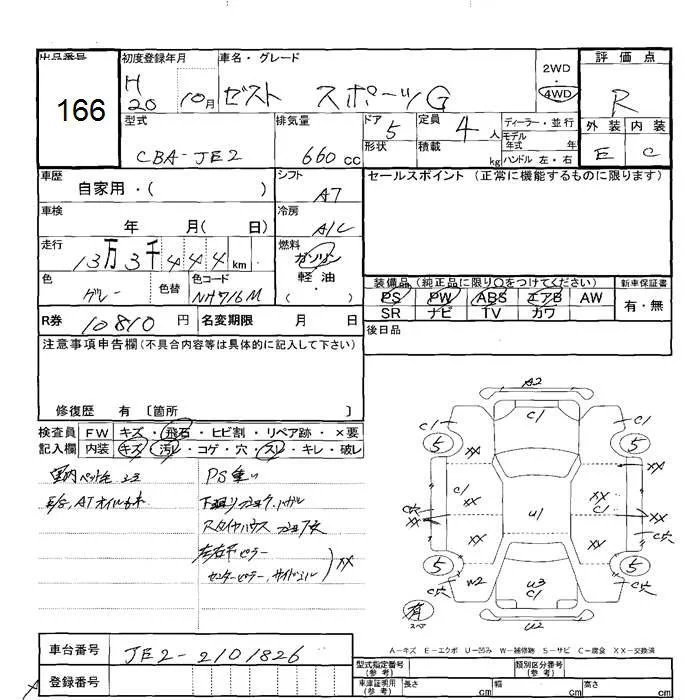 出品番号 初度登録年月 車名・グレード 2WD 評価点
166 H 20 10月 ゼスト スポーツG 4WD R
型式 排気量 ドア 5 定員 4 人 ディーラー・並行 外装 内装
CBA-JE2 660 cc 形状 積載 kg モデル年式 年 E C
ハンドル 左・右
車歴 自家用・( ) シフト AT セールスポイント (正常に機能するものに限ります)
車検 年 月( 日) 冷房 A/C
走行 13万3千444km 燃料 ガソリン
色 グレー 色替 色コード NH716M 軽油 ( )
装備品 (純正品に限り○をつけてください) 新車保証書
PS PW ABS エアB AW 有・無
SR ナビ TV カワ
R券 10810 円 名変期限 月 日 後日品
注意事項申告欄 (不具合内容等は具体的に記入して下さい)
修復歴 有 〔箇所 〕
検査員 FW キズ・飛石・ヒビ割・リペア跡・×要
記入欄 内装 キズ・汚レ・コゲ・穴・スレ・キレ・破レ
PS重い
A2
C1 C1 C1
5 5
XX XX
C1 XX XX
XX U1 C1 XX
C穴 C穴
5 5
W2 U3 C1 C穴 C穴
有 スペア
U2
A-キズ E-エクボ U-凹み W-補修跡 S-サビ C-腐食 XX-交換済
車台番号 JE2-2101826
登録番号
型式指定番号 (参考) 類別区分番号 (参考)
車庫証明用 (参考) 長さ cm 幅 cm 高さ cm